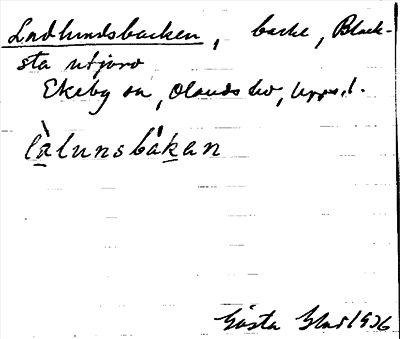 Ladlundsbacken, backe, Black-
sta utjord
Ekeby sn, Olands hd, Uppsl.
làlunsbákan
Gösta 1936